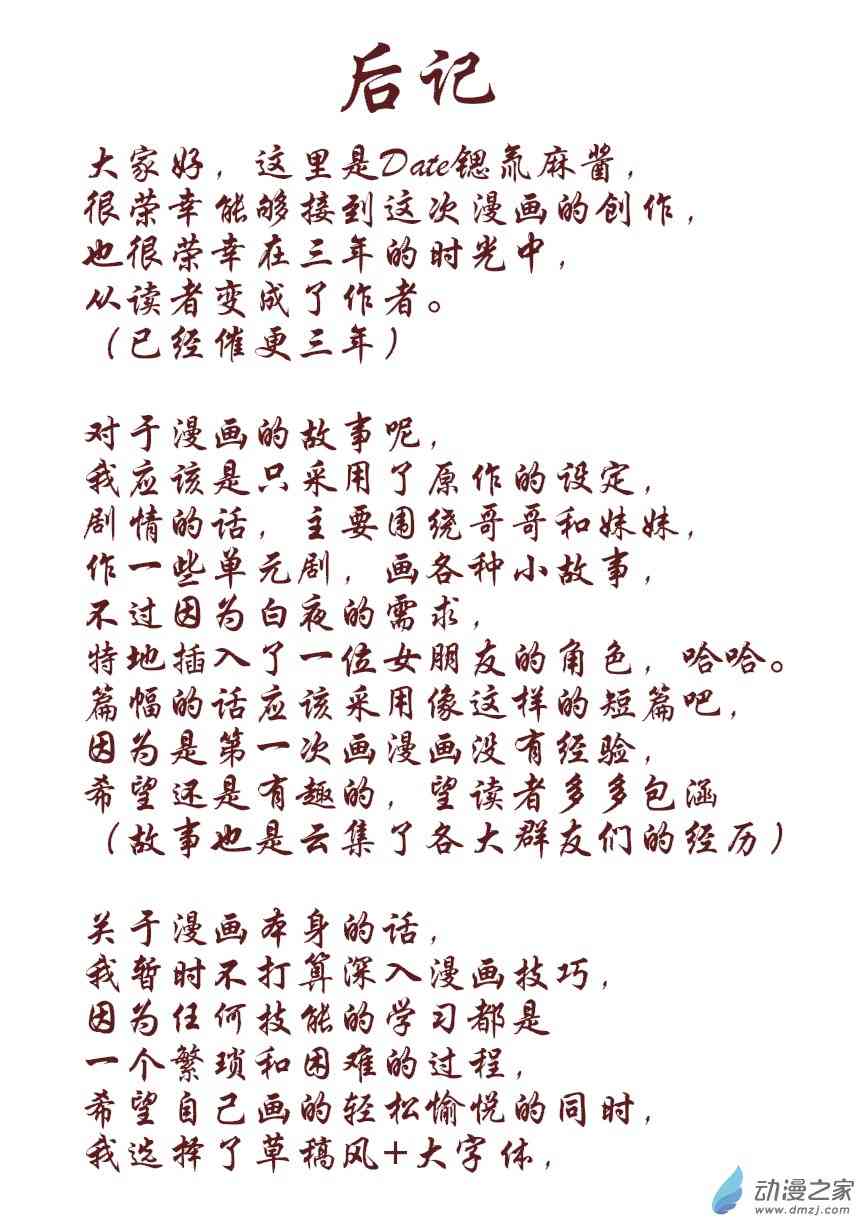 后记
大家好，这里是Date锶氚麻酱，
很荣幸能够接到这次漫画的创作，
也很荣幸在三年的时光中，
从读者变成了作者。
（已经催更三年）
对于漫画的故事呢，
我应该是只采用了原作的设定，
剧情的话，主要围绕哥哥和妹妹，
作一些单元剧，画各种小故事，
不过因为白夜的需求，
特地插入了一位女朋友的角色，哈哈。
篇幅的话应该采用像这样的短篇吧，
因为是第一次画漫画没有经验，
希望还是有趣的，望读者多多包涵
（故事也是云集了各大群友们的经历）
关于漫画本身的话，
我暂时不打算深入漫画技巧，
因为任何技能的学习都是
一个繁琐和困难的过程，
希望自己画的轻松愉悦的同时，
我选择了草稿风+大字体，
动漫之家
www.dmzj.com